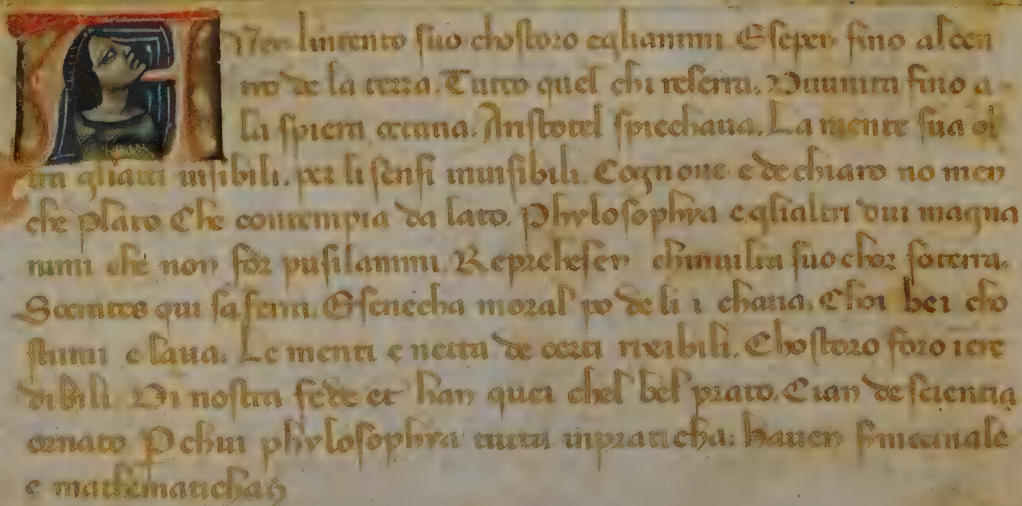 lintento suo chostoro egli animi Eseper fino al cen
tro de la terra. Tutto quel chi reserra. fino a
la spiera eterna. Aristotel spiechaua. La mente sua ol
tra gliatti uisibili. per li sensi inuisibili. Cognoue e dechiaro no men
che plato Che contempla da lato. Phylosophya e glialtri dui magna
nimi che non for pusilanimi. Represer chinuilta suo chor soterra.
Socrates qui safferra. E senecha moral po de li i chaua. Choi bei cho
stumi e laua. Le menti e netta de certi rixibili. Chostoro foro icre
dibili. Di nostra fede et han quei chel bel prato. Cian de sciencia
ornato P chui phylosophya tutta inpraticha. hauer
e mathematicha